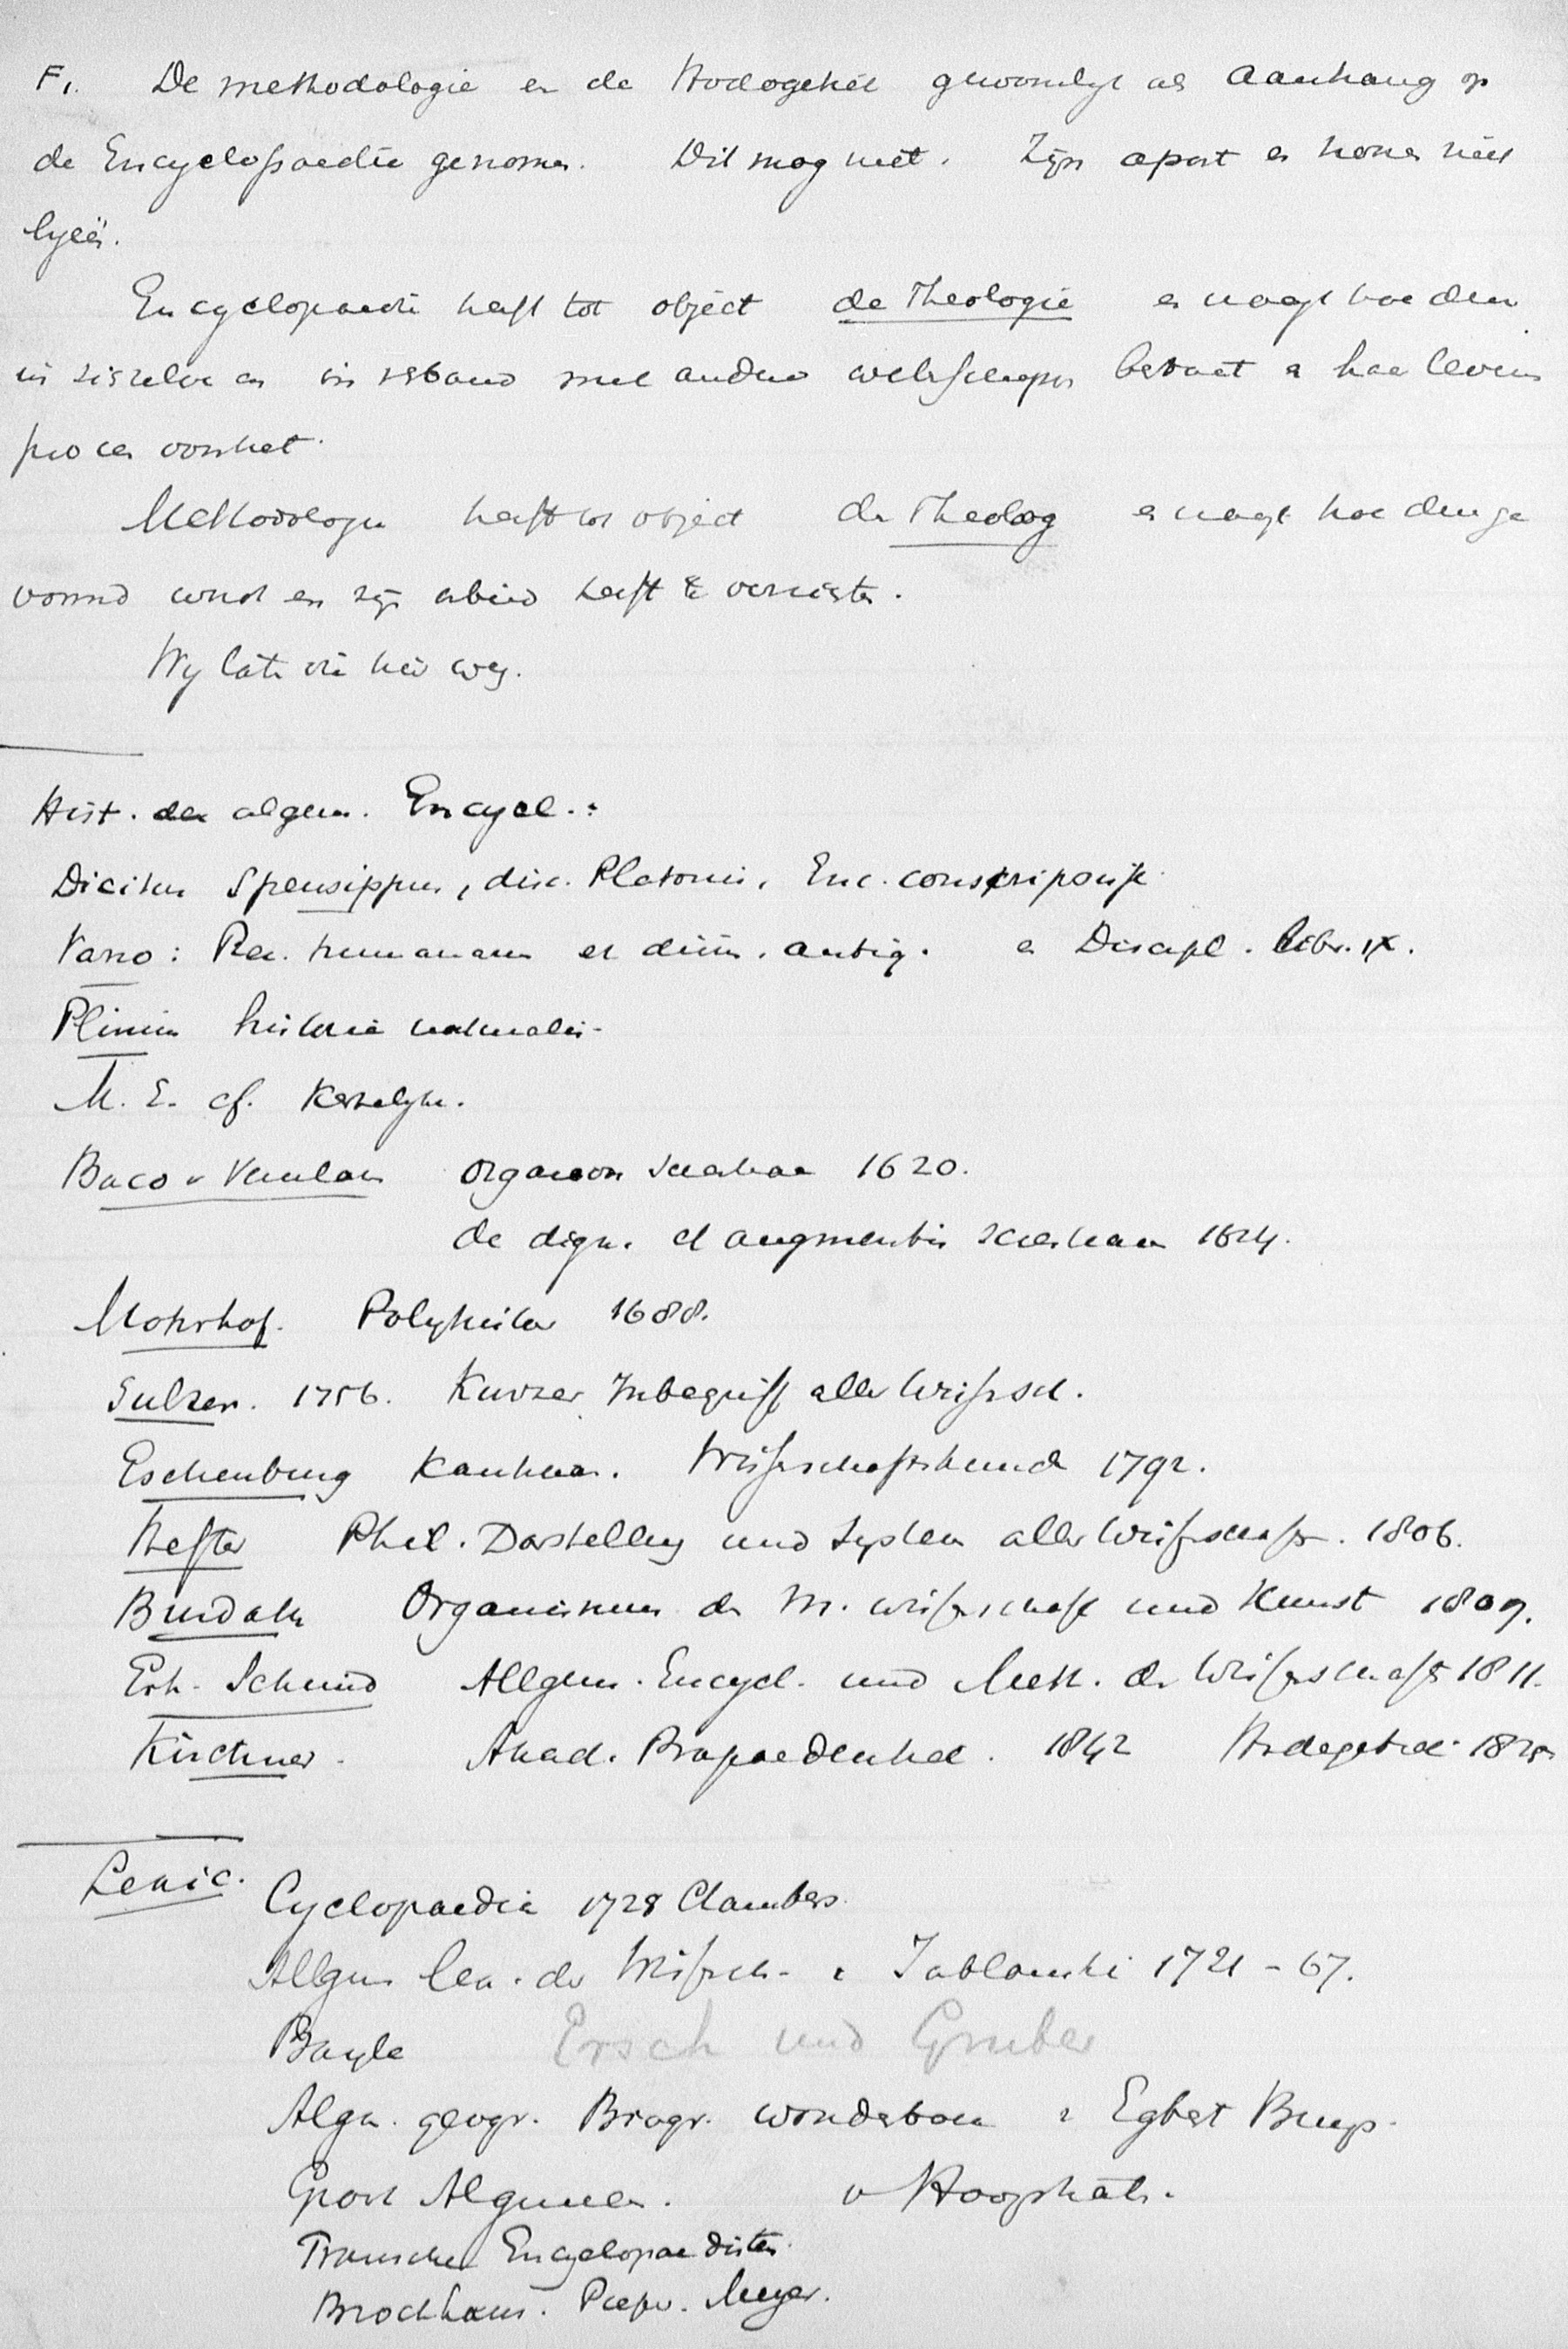 F,. De methodologie en de Hodogetiek gewoonlyk als Aanhang op
de Encyclopaedie genomen. Dit mag niet. Zijn apart en horen niet
Encyclopaedie heeft tot object de Theologie en vraagt hoe deze
in zichzelve en in verband met andere wetenschappen bestaat en haar levens
proces voortzet.
Methodologie heeft tot object de Theoloog en vraagt hoe deze ge
vormd wordt en zijn arbeid heeft te verrichten.
Wy laten die hier weg.
Hist. der algem. Encycl.:
Dicitur Speusippus, disc. Platonis, Enc. conscripsisse
Varro: Rer. humanarum et divin. antiq. en Discipl. libr. IX.
Plinius historia naturalis
M. E. cf. Kerkelyke.
Baco v Verulam Organon scientiar 1620.
de dign. et augmentis scientiarum 1624.
Mohrhof. Polyhistor 1688.
Sulzer. 1756. Kurzer Inbegriff aller Wissensch.
Eschenburg Wissenschaftskunde 1792.
Hefter Phil. Darstellung und System aller Wissenschaft. 1806.
Burdach Organismus der M. Wissenschaft und Kunst 1809.
Erh. Schmid Allgem. Encycl. und Meth. der Wissenschaft 1811.
Kirchner. Akad. Propaedeutik. 1842 Hodegetik
Lexic.
Cyclopaedia 1728 Chambers.
Allgem lex. der Wissensch. v Jablonski 1721-67.
Bayle Ersch und Gruber
Algem. geogr. Biogr. woordenboek v Egbert Buys.
Groot Algemeen. v Hoogstraten.
Fransche Encyclopaedisten.
Brockhaus. Pierer. Meyer.